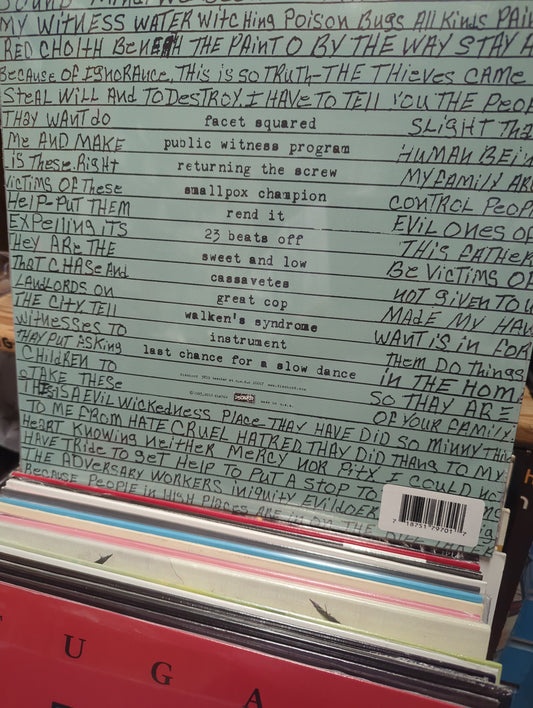 MY WITNESS WATER WITCHING POISON BUGS All KINDS PAIN
RED CHOITH BENETH THE PAINT O BY THE WAY STAY A
BECAUSE OF IGNORANCE, THIS IS SO TRUTH-THE THIEVES CAME
STEAL WILL AND TO DESTROY. I HAVE TO TELL YOU THE PEOPL
THAY WANT DO facet squared SLIGHT THA
ME AND MAKE public witness program HUMAN BEIN
IS THESE. RIGHT returning the screw MY FAMILY ARE
VICTIMS OF THESE smallpox champion CONTROL PEOPL
HELP-PUT THEM rend it EVIL ONES OF
EXPELLING ITS 23 beats off THIS FATHER
HEY ARE THE sweet and low BE VICTIMS OF
THAT CHASE AND cassavetes NOT GIVEN TO U
LANDLORDS ON great cop MADE MY HAW
THE CITY TELL walken's syndrome WANT IS IN FOR
WITNESSES TO instrument THEM DO THINGS
THAY PUT ASKING last chance for a slow dance IN THE HOM
CHILDREN TO SO THAY ARE
TAKE THESE DISCHORD made in u.s.a. OF YOUR FAMILY
THIS IS A EVIL WICKEDNESS PLACE THAY HAVE DID SO MINNY THI
TO ME FROM HATE CRUEL HATRED THAY DID THANG TO MY
HEART KNOWING NEITHER MERCY NOR PITY I COULD NO
HAVE TRIDE TO GET HELP TO PUT A STOP TO
THE ADVERSARY WORKERS INIQUITY EVILDOER
BECAUSE PEOPLE IN HIGH PLACES ARE IN ON THE
7 18751 79701 7
T U G A